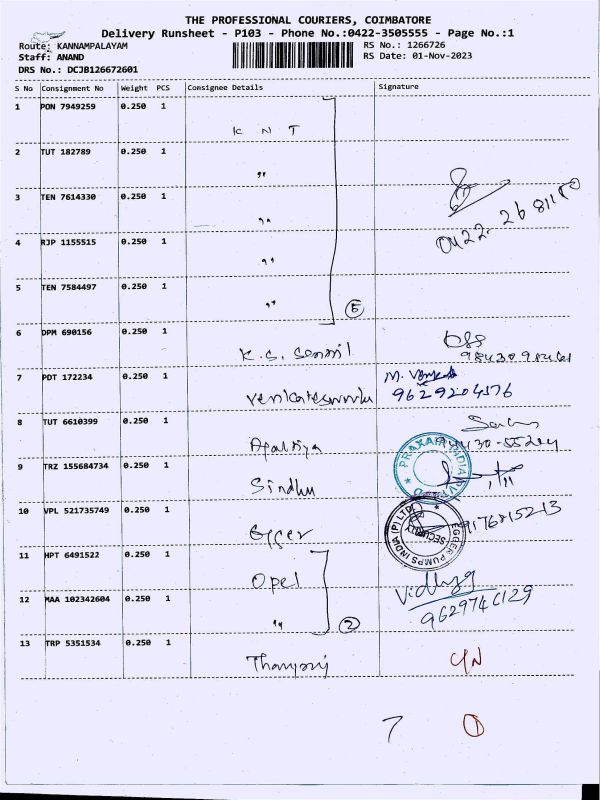 THE PROFESSIONAL COURIERS, COIMBATORE
Delivery Runsheet - P103 - Phone No.:0422-3505555 - Page No.:1
Route: KANNAMPALAYAM RS No.: 1266726
Staff: ANAND RS Date: 01-Nov-2023
DRS No.: DCJB126672601
S No Consignment No Weight PCS Consignee Details Signature
1 PON 7949259 0.250 1
K N T
2 TUT 182789 0.250 1
"
3 TEN 7614330 0.250 1
"
4 RJP 1155515 0.250 1
"
5 TEN 7584497 0.250 1
" 5
6 DPM 690156 0.250 1
K. S. Senthil
7 PDT 172234 0.250 1 M.
9629204576
8 TUT 6610399 0.250 1
9 TRZ 155684734 0.250 1 PRAXAIR INDIA
Sindhu
10 VPL 521735749 0.250 1 EGGER PUMPS INDIA (P) LTD SECURITY
Egger 9176815213
11 HPT 6491522 0.250 1
Opel Vidhya
12 MAA 102342604 0.250 1
" 2
13 TRP 5351534 0.250 1
7 1